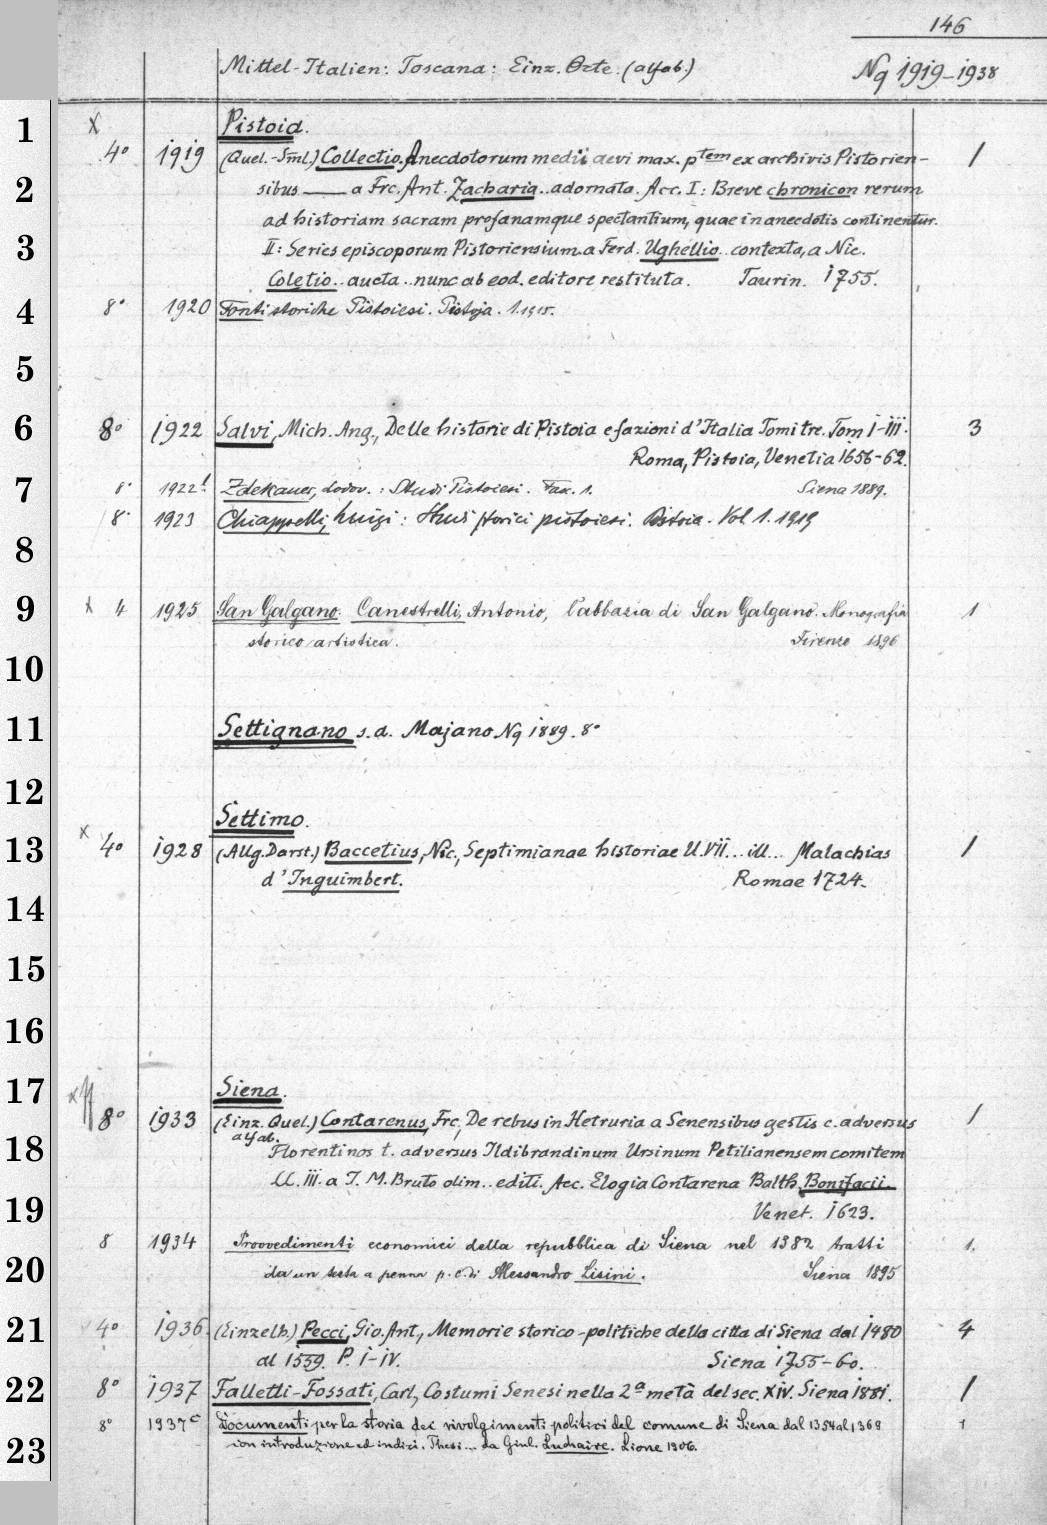 146
Mittel-Italien: Toscana: Einz. Orte. (alfab.) Nq 1919-1938
1 x Pistoia.
4° 1919 (Quel.-Sml.) Collectio. Anecdotorum medii aevi max. ptem ex archivis Pistorien- 1
2 sibus —— a Frc. Ant. Zacharia.. adornata. Acc. I: Breve chronicon rerum
ad historiam sacram profanamque spectantium, quae in anecdotis continentur.
3 II: Series episcoporum Pistoriensium a Ferd. Ughellio.. contexta, a Nic.
Coletio.. aucta.. nunc ab eod. editore restituta. Taurin. 1755.
4 8° 1920 Fonti storiche Pistoiesi. Pistoja. 1.1915.
5
6 8° 1922 Salvi, Mich. Ang., Delle historie di Pistoia e fazioni d'Italia Tomi tre. Tom I-III. 3
Roma, Pistoia, Venetia 1656-62.
7 8° 1922¹ Zdekauer, Lodov.: Studi Pistoiesi. Fasc. 1. Siena 1889.
8° 1923 Chiappelli, Luigi: Studi storici pistoiesi. Pistoia. Vol 1. 1919
8
9 x 4 1925 San Galgano. Canestrelli, Antonio, l'abbazia di San Galgano. Monografia 1
storico artistica. Firenze 1896
10
11 Settignano s.a. Majano Nq 1889. 8°
12
Settimo.
13 x 4° 1928 (Allg. Darst.) Baccetius, Nic., Septimianae historiae ll. VII... ill... Malachias 1
d'Inguimbert. Romae 1724.
14
15
16
17 x Siena.
8° 1933 (Einz. Quel.) Contarenus, Frc., De rebus in Hetruria a Senensibus gestis c. adversus 1
alfab.
18 Florentinos t. adversus Ildibrandinum Ursinum Petilianensem comitem
ll. III. a J. M. Bruto olim.. editi. Acc. Elogia Contarena Balth. Bonifacii.
19 Venet. 1623.
8 1934 Provvedimenti economici della repubblica di Siena nel 1382 tratti 1.
20 da un testo a penna p. c. di Alessandro Lisini. Siena 1895
21 4° 1936. (Einzelh.) Pecci, Gio. Ant., Memorie storico-politiche della citta di Siena dal 1480 4
al 1559. P. I-IV. Siena 1755-60.
22 8° 1937 Falletti-Fossati, Carl, Costumi Senesi nella 2a metà del sec. XIV. Siena 1881. 1
8° 1937c Documenti per la storia dei rivolgimenti politici del comune di Siena dal 1354 al 1369 1
23 con introduzione ed indici. Thesi... da Giul. Luchaire. Lione 1906.